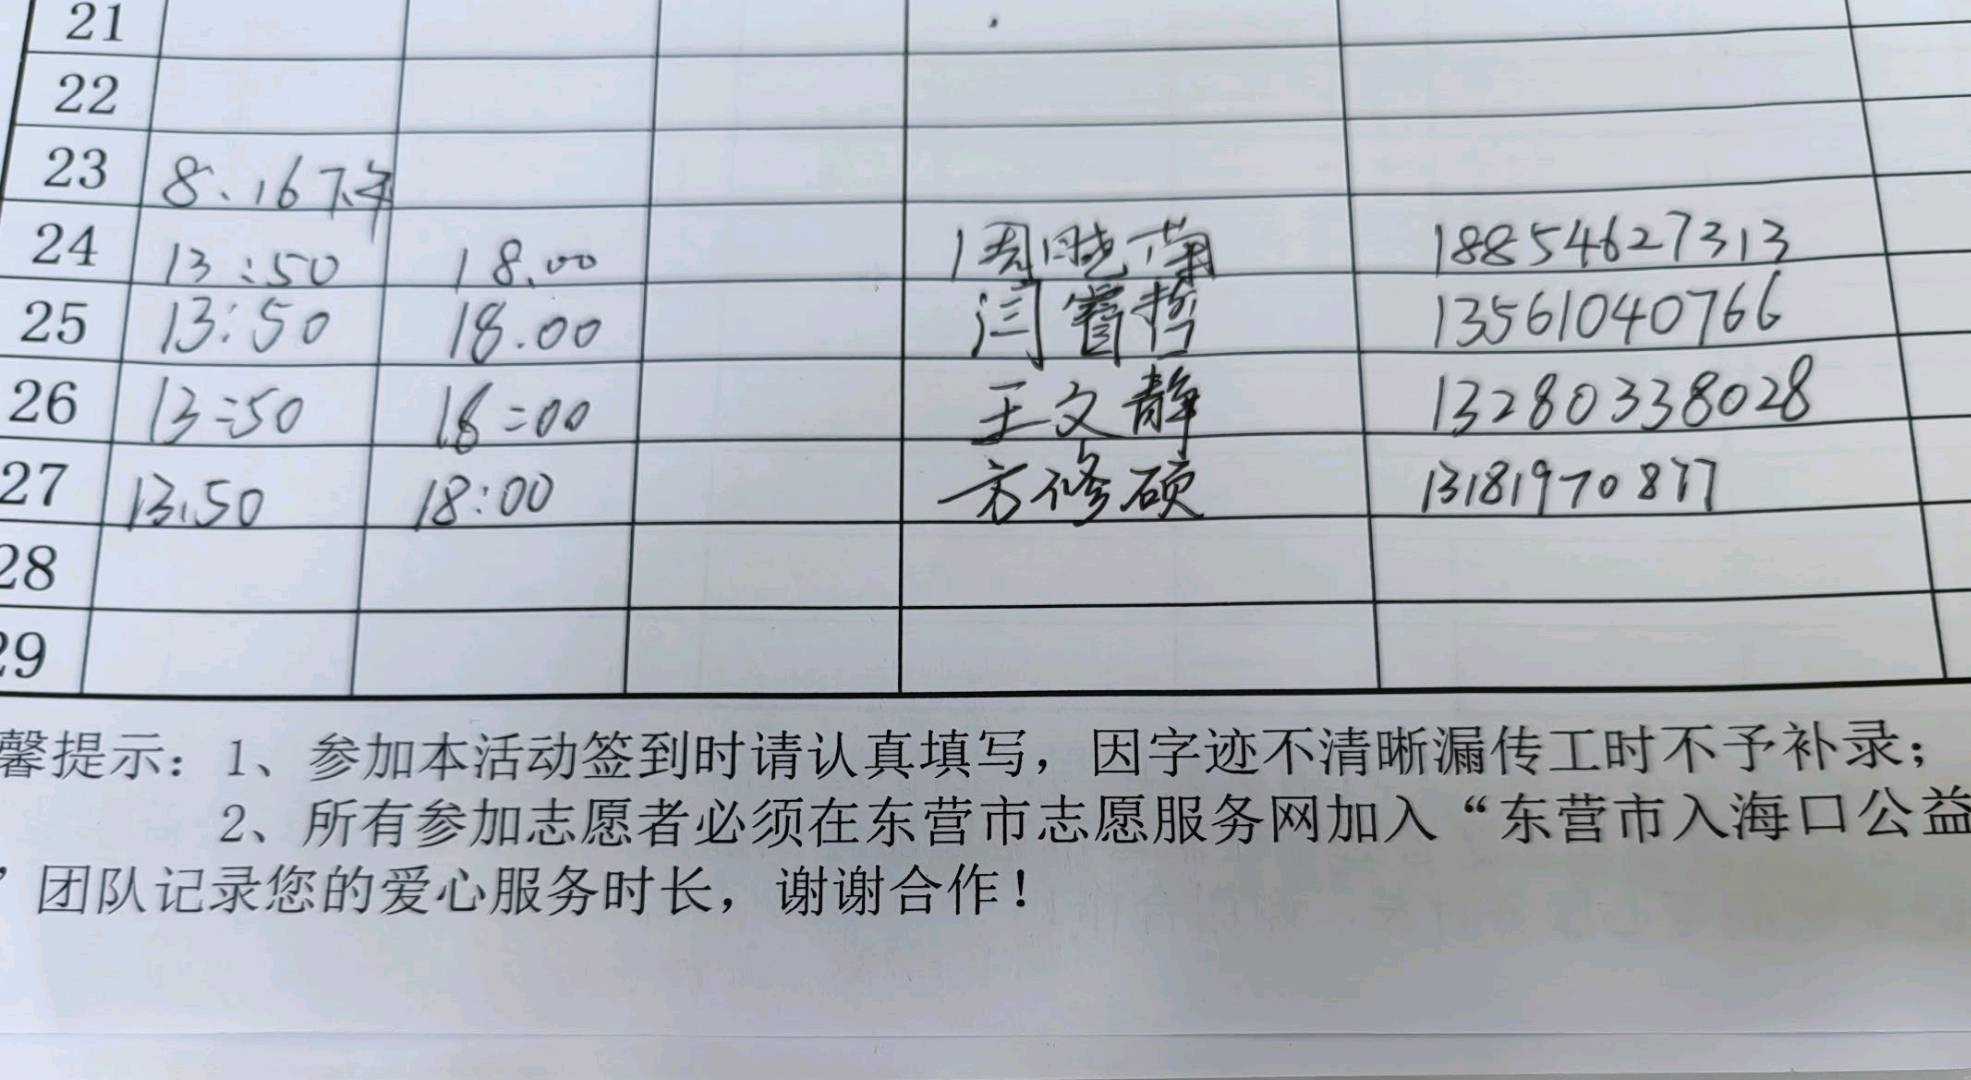 21
22
23 8.16下午
24 13:50 18.00 周晓菊 18854627313
25 13:50 18.00 闫睿哲 13561040766
26 13:50 18:00 王文静 13280338028
27 13.50 18:00 方修硕 13181970877
28
29
馨提示：1、参加本活动签到时请认真填写，因字迹不清晰漏传工时不予补录；
2、所有参加志愿者必须在东营市志愿服务网加入“东营市入海口公益
”团队记录您的爱心服务时长，谢谢合作！